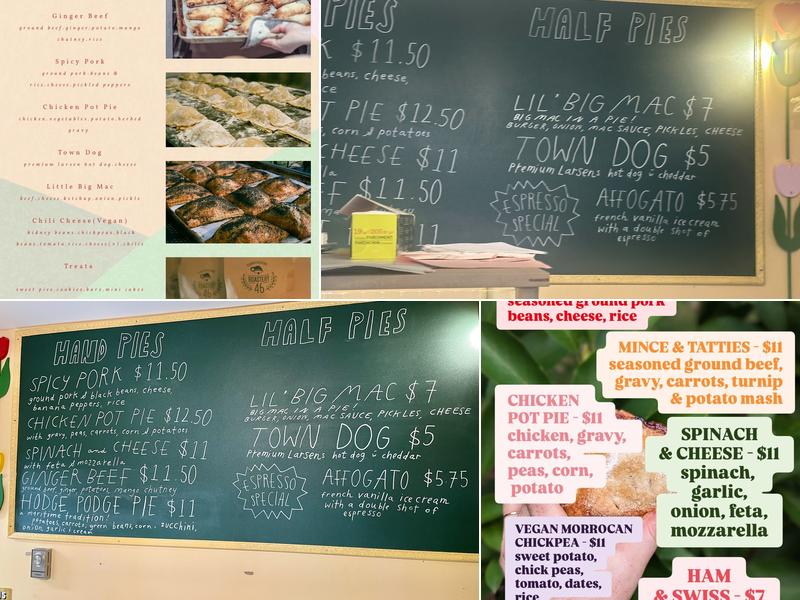 Ginger Beef
ground beef.ginger.potato.mango
chutney.rice
Spicy Pork
ground pork.beans &
rice.cheese.pickled peppers
Chicken Pot Pie
chicken.vegetables.potato.herbed
gravy
Town Dog
premium larsen hot dog.cheese
Little Big Mac
beef.cheese.ketchup.onion.pickle
Chili Cheese(Vegan)
kidney beans.chickpeas.black
beans.tomato.rice.cheese(n).chilis
Treats
sweet pies.cookies.bars.mini cakes
ROASTERY
46
PIES
K $11.50
beans, cheese,
ce
T PIE $12.50
, corn & potatoes
CHEESE $11
la
F $11.50
11
HALF PIES
LIL' BIG MAC $7
BIG MAC IN A PIE!
BURGER, ONION, MAC SAUCE, PICKLES, CHEESE
TOWN DOG $5
Premium Larsens hot dog c̄ cheddar
ESPRESSO
SPECIAL
AFFOGATO $5.75
french vanilla ice cream
with a double shot of
espresso
HAND PIES
SPICY PORK $11.50
ground pork & black beans, cheese,
banana peppers, rice
CHICKEN POT PIE $12.50
with gravy, peas, carrots, corn & potatoes
SPINACH and CHEESE $11
with feta & mozzarella
GINGER BEEF $11.50
ground beef, ginger, potatoes, mango chutney
HODGE PODGE PIE $11
a maritime tradition!
potatoes, carrots, green beans, corn, zucchini,
onion, garlic & cream
HALF PIES
LIL' BIG MAC $7
BIG MAC IN A PIE!
BURGER, ONION, MAC SAUCE, PICKLES, CHEESE
TOWN DOG $5
Premium Larsens hot dog c̄ cheddar
ESPRESSO
SPECIAL
AFFOGATO $5.75
french vanilla ice cream
with a double shot of
espresso
seasoned ground pork
beans, cheese, rice
MINCE & TATTIES - $11
seasoned ground beef,
gravy, carrots, turnip
& potato mash
CHICKEN
POT PIE - $11
chicken, gravy,
carrots,
peas, corn,
potato
SPINACH
& CHEESE - $11
spinach,
garlic,
onion, feta,
mozzarella
VEGAN MORROCAN
CHICKPEA - $11
sweet potato,
chick peas,
tomato, dates,
rice
HAM
& SWISS - $7